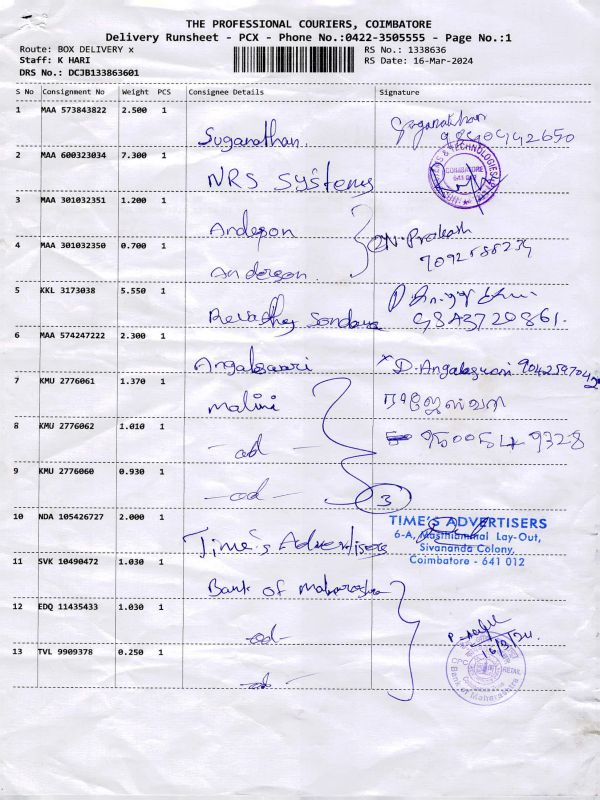 THE PROFESSIONAL COURIERS, COIMBATORE
Delivery Runsheet - PCX - Phone No.:0422-3505555 - Page No.:1
Route: BOX DELIVERY x RS No.: 1338636
Staff: K HARI RS Date: 16-Mar-2024
DRS No.: DCJB133863601
S No Consignment No Weight PCS Consignee Details Signature
1 MAA 573843822 2.500 1
Suganathan
2 MAA 600323034 7.300 1
NRS Systems
COIMBATORE
3 MAA 301032351 1.200 1
Anderson N. Prakash
4 MAA 301032350 0.700 1
Anderson
5 KKL 3173038 5.550 1
6 MAA 574247222 2.300 1
D. Angaleswari
7 KMU 2776061 1.370 1
Malini ராஜேஸ்வரி
8 KMU 2776062 1.010 1
- ad -
9 KMU 2776060 0.930 1
- ad - 3
10 NDA 105426727 2.000 1
Time's Advertisers
TIME'S ADVERTISERS
6-A, Lay-Out,
Sivananda Colony,
Coimbatore - 641 012
11 SVK 10490472 1.030 1
Bank of
12 EDQ 11435433 1.030 1
- ad -
16/3/24
13 TVL 9909378 0.250 1
- ad -
RETAIL
Bank of Maharashtra